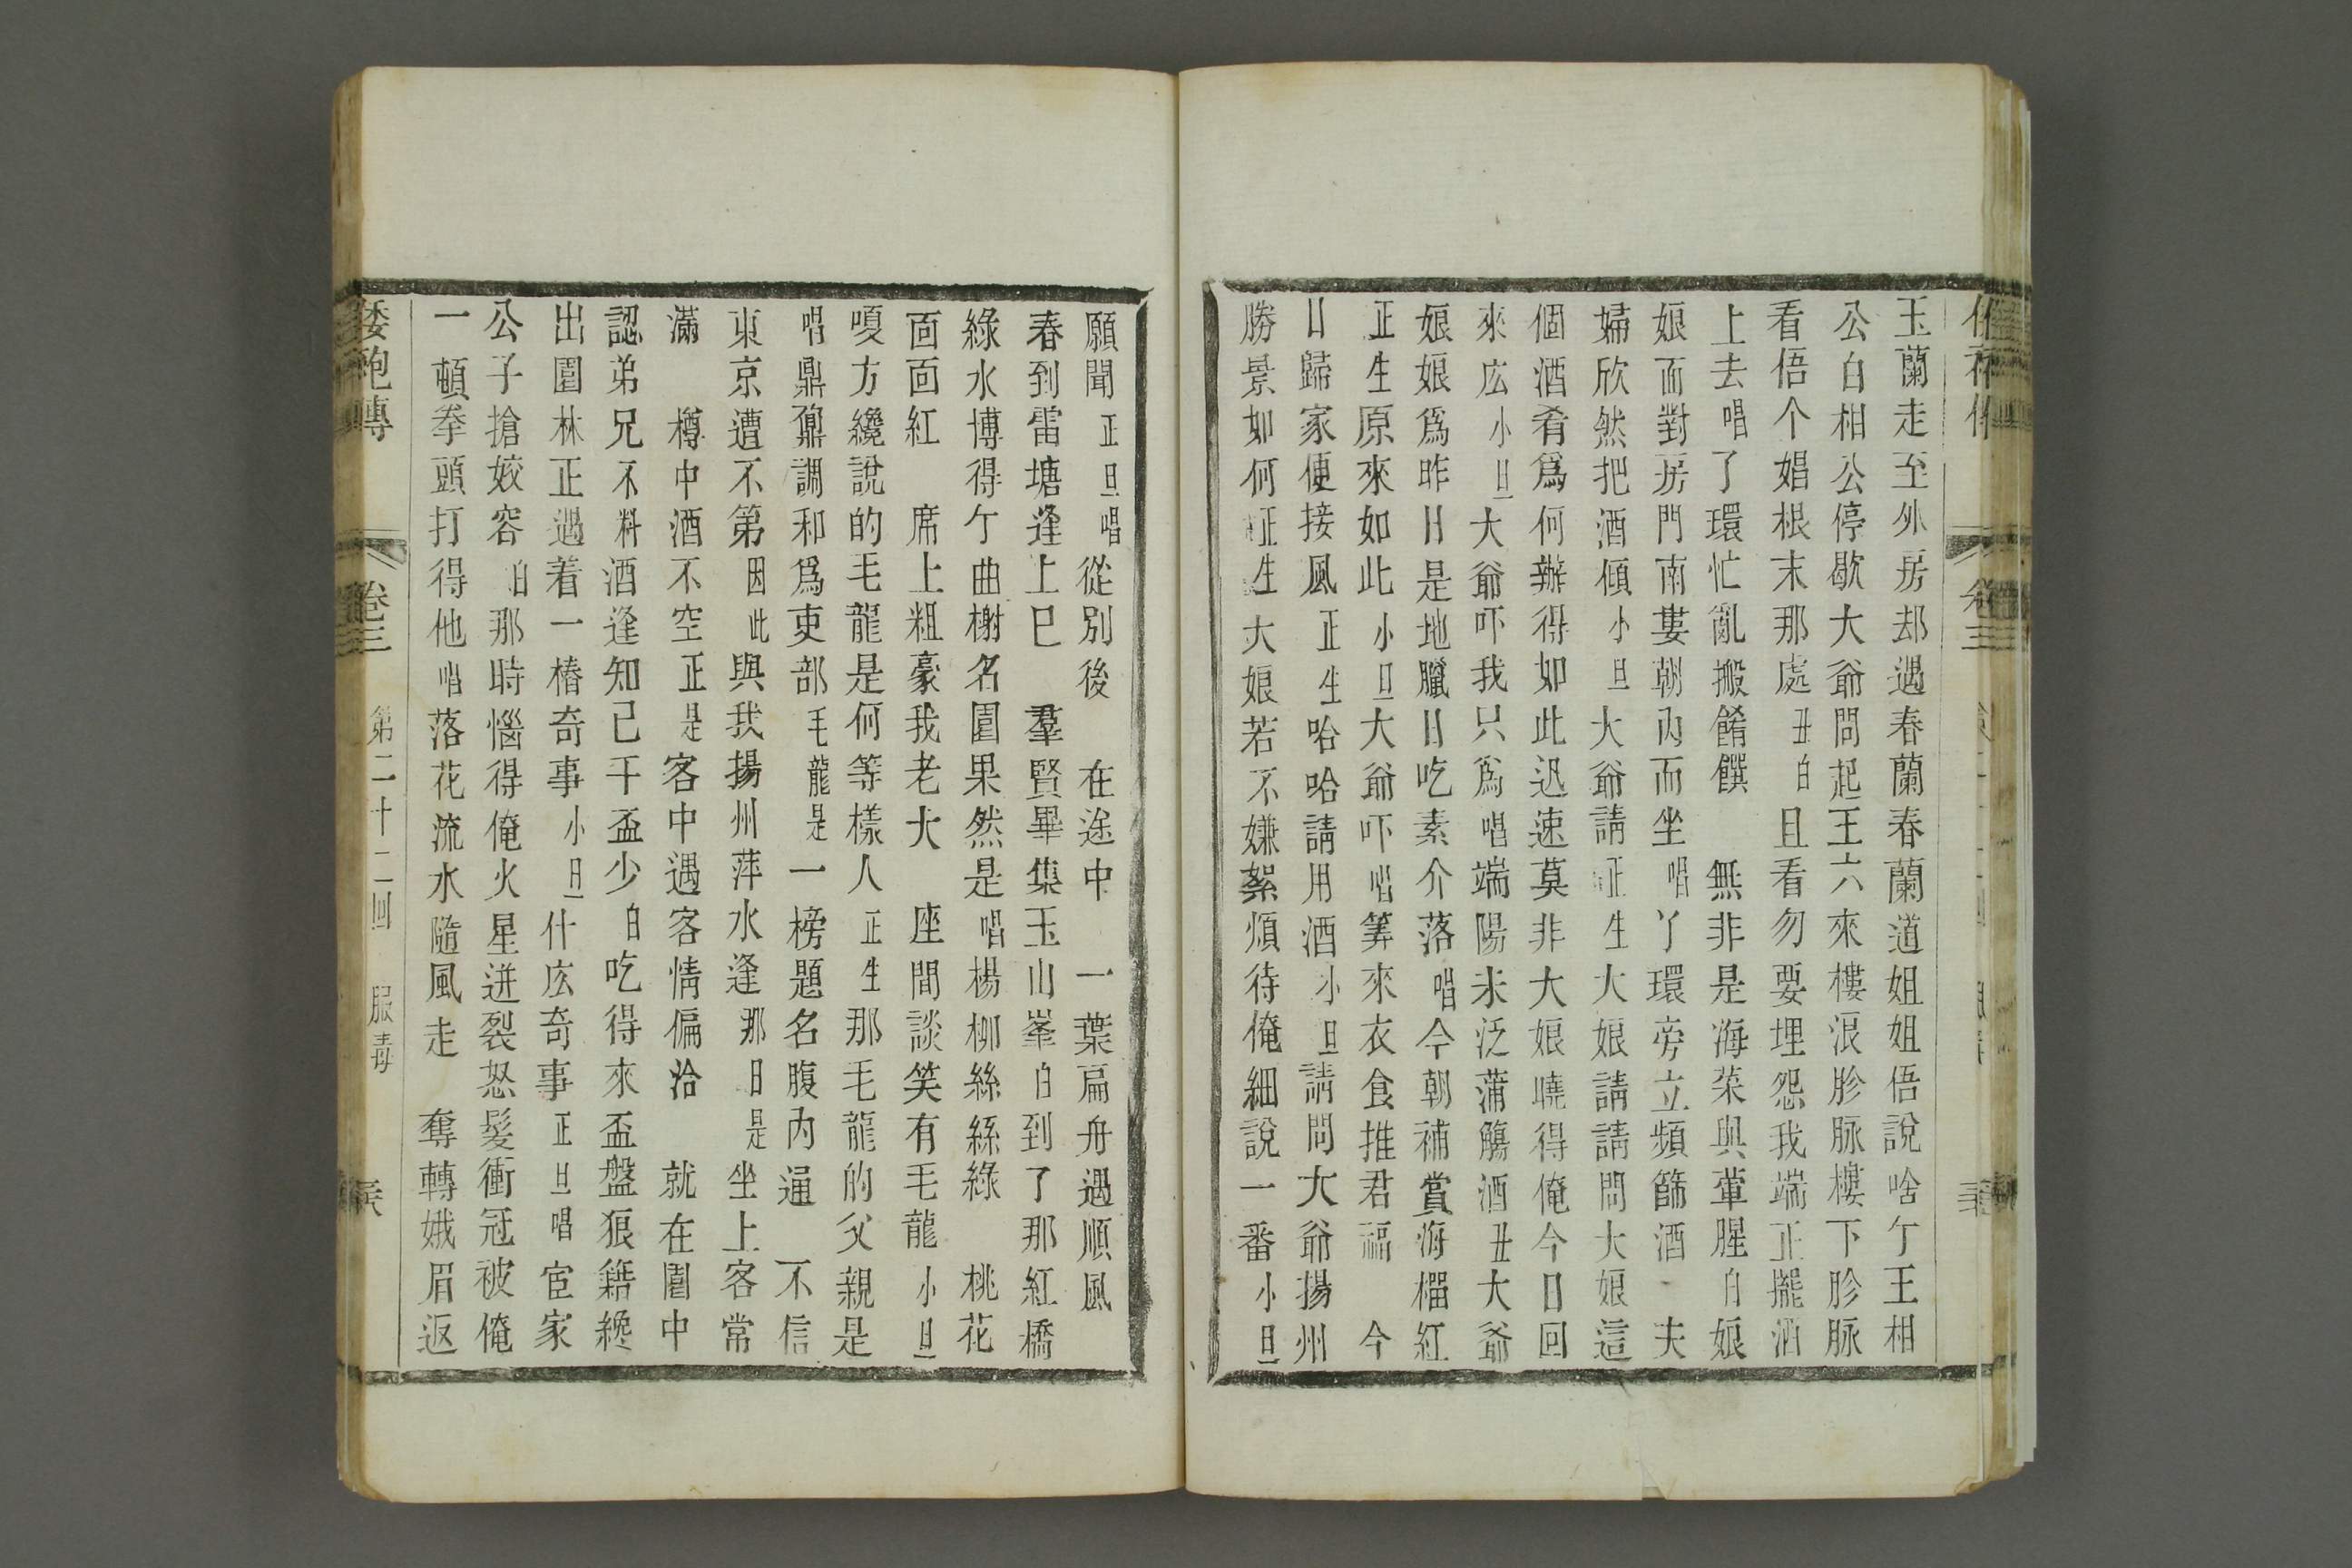 玉蘭走至外房却遇春蘭春蘭道姐姐俉說啥亇王相
公白相公停歇大爺問起王六來樓浪胗脉樓下胗脉
看俉个娼根末那處丑白且看勿要埋怨我端正擺酒
上去唱了環忙亂搬餚饌　無非是海菜與葷腥白娘
娘面對房門南婁朝內而坐唱丫環旁立頻篩酒　夫
婦欣然把酒傾小旦大爺請正生大娘請請問大娘這
個酒肴爲何辦得如此迅速莫非大娘曉得俺今日回
來広小旦大爺吓我只爲唱端陽未泛蒲觴酒丑大爺
娘娘爲昨日是地臘日吃素介落唱今朝補賞海榴紅
正生原來如此小旦大爺吓唱筭來衣食推君福　今
日歸家便接風正生哈哈請用酒小旦請問大爺揚州
勝景如何正生大娘若不嫌絮煩待俺細說一番小旦
願聞正旦唱從別後　在途中　一葉扁舟遇順風
春到雷塘逢上巳　羣賢畢集玉山峯白到了那紅橋
綠水博得亇曲榭名園果然是唱楊柳絲絲綠　桃花
面面紅　席上粗豪我老大　座間談笑有毛龍小旦
嗄方纔說的毛龍是何等樣人正生那毛龍的父親是
唱鼎鼐調和爲吏部毛龍是一榜題名腹內通　不信
東京遭不第因此與我揚州萍水逢那日是坐上客常
滿　樽中酒不空正是客中遇客情偏洽　就在園中
認弟兄不料酒逢知己千盃少白吃得來盃盤狼籍纔
出園林正遇着一樁奇事小旦什広奇事正旦唱宦家
公子搶姣容白那時惱得俺火星迸裂怒髮衝冠被俺
一頓拳頭打得他唱落花流水隨風走　奪轉娥眉返
倭袍傳　卷三　第二十二回　服毒